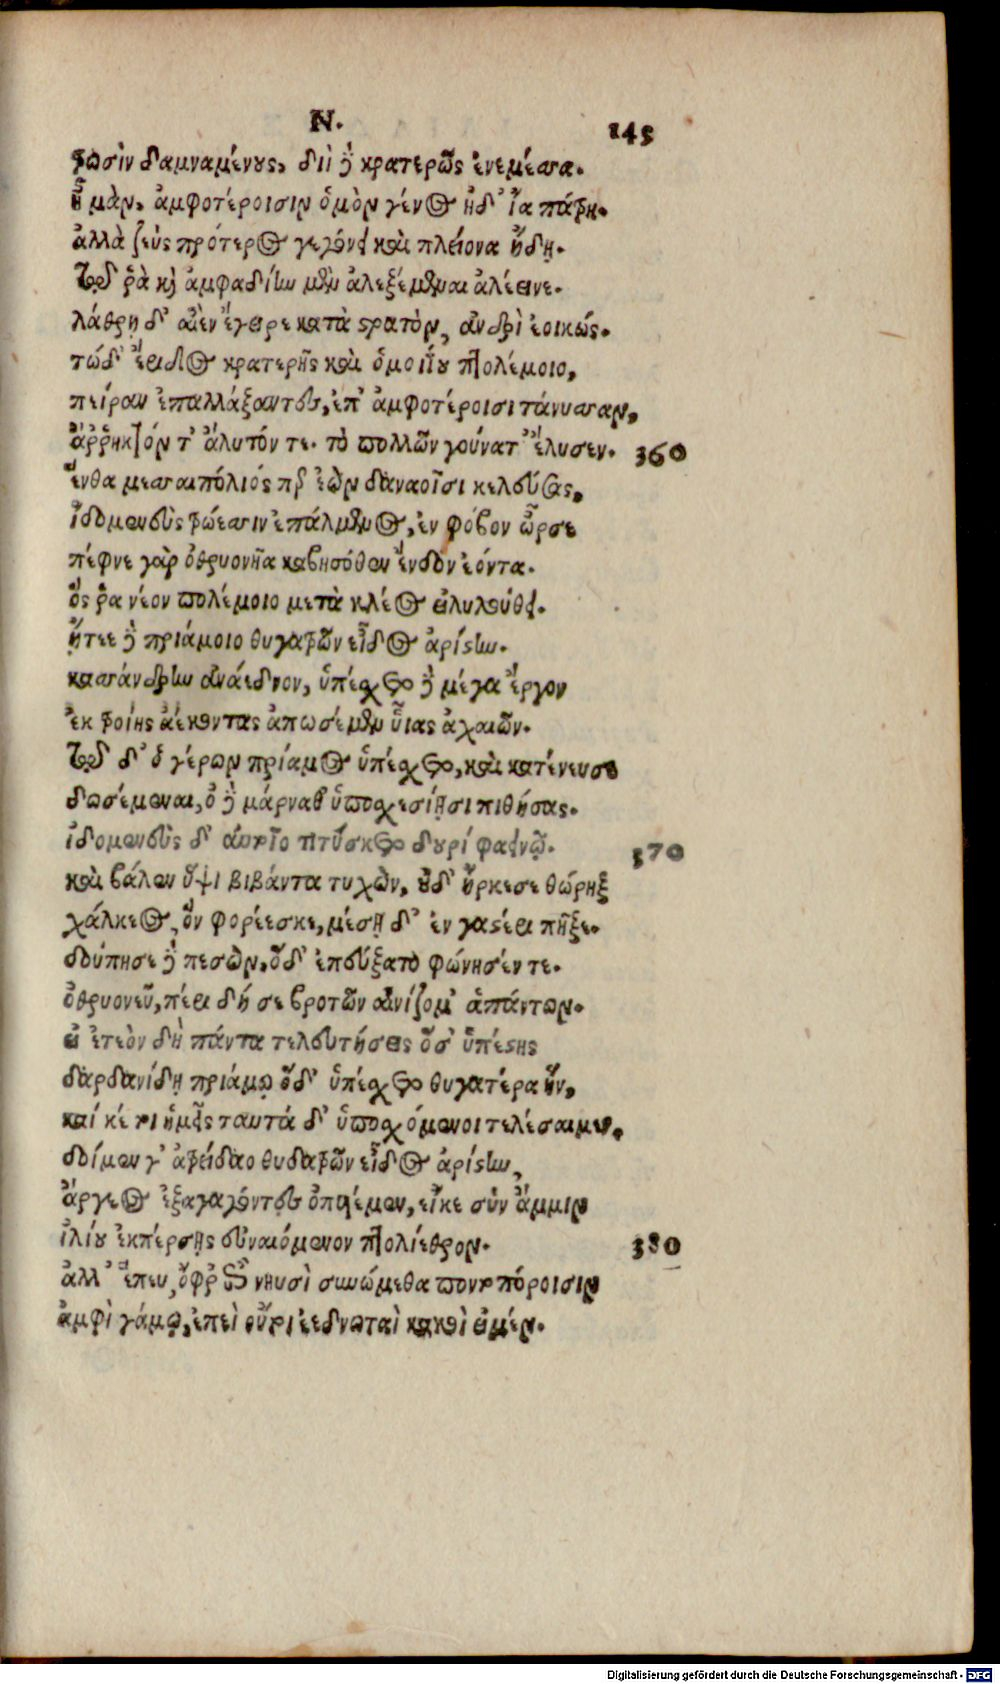 Ν. 145
τρωσὶν δαμναμένους, διὶ δὲ κρατερῶς ἐνεμέσσα.
ἦ μὰν, ἀμφοτέροισιν ὁμὸν γένος ἠδ᾽ ἴα πάτρη.
ἀλλὰ ζεὺς πρότερος γεγόνει καὶ πλείονα ᾔδη.
τῷ ῥὰ καὶ ἀμφαδίην μὲν ἀλεξέμεναι ἀλέεινε.
λάθρῃ δ᾽ αἰὲν ἔγειρε κατὰ στρατὸν, ἀνδρὶ ἐοικώς.
τώδ᾽ ἔειδος κρατερῆς καὶ ὁμοιΐου πτολέμοιο,
πείραν ἐπαλλάξαντες, ἐπ᾽ ἀμφοτέροισι τάνυσσαν,
ἄῤῥηκτόν τ᾽ ἄλυτόν τε. τὸ πολλῶν γούνατ᾽ ἔλυσεν. 360
ἔνθα μεσσαιπόλιός περ ἐὼν δαναοῖσι κελεύσας,
ἰδομενεὺς τρώεσσιν ἐπάλμενος, ἐν φόβον ὦρσε
πέφνε γὰρ ὀθρυονῆα καβησόθεν ἔνδον ἐόντα.
ὅς ῥα νέον πολέμοιο μετὰ κλέος εἰλυλούθει.
ᾔτεε δὲ πριάμοιο θυγατρῶν εἶδος ἀρίστην.
κασσάνδρην ἀνάεδνον, ὑπέσχετο δὲ μέγα ἔργον
ἐκ τροίης ἀέκοντας ἀπωσέμεν υἷας ἀχαιῶν.
τῷ δ᾽ ὁ γέρων πρίαμος ὑπέσχετο, καὶ κατένευσε
δωσέμεναι, ὁ δὲ μάρναθ᾽ ὑποσχεσίῃσι πιθήσας.
ἰδομενεὺς δ᾽ αὐτοῖο τιτύσκετο δουρί φαεινῷ. 370
καὶ βάλεν ὕψι βιβάντα τυχὼν, οὐδ᾽ ἤρκεσε θώρηξ
χάλκεος, ὃν φορέεσκε, μέσῃ δ᾽ ἐν γαστέρι πῆξε.
δούπησε δὲ πεσὼν, ὅδ᾽ ἐπεύξατο φώνησέν τε.
ὀθρυονεῦ, πέρι δή σε βροτῶν αἰνίζομ᾽ ἁπάντων.
εἰ ἐτεὸν δὴ πάντα τελευτήσεις ὅσ᾽ ὑπέστης
δαρδανίδῃ πριάμῳ ὅδ᾽ ὑπέσχετο θυγατέρα ἣν,
καί κέ τι ἡμεῖς ταυτά δ᾽ ὑποσχόμενοι τελέσαιμεν,
δοίμεν γ᾽ ἀτρείδαο θυδατρῶν εἶδος ἀρίστην,
ἄργεος ἐξαγαγόντες ὀπυιέμεν, εἴκε σὺν ἄμμιν
ἰλίου ἐκπέρσῃς εὐναιόμενον πτολίεθρον. 380
ἀλλ᾽ ἕπευ, ὄφρ᾽ ἐπὶ νηυσὶ συνώμεθα ποντοπόροισιν
ἀμφὶ γάμῳ, ἐπεὶ οὔτι ἐεδνωταὶ κακοὶ εἰμέν.
Digitalisierung gefördert durch die Deutsche Forschungsgemeinschaft - DFG